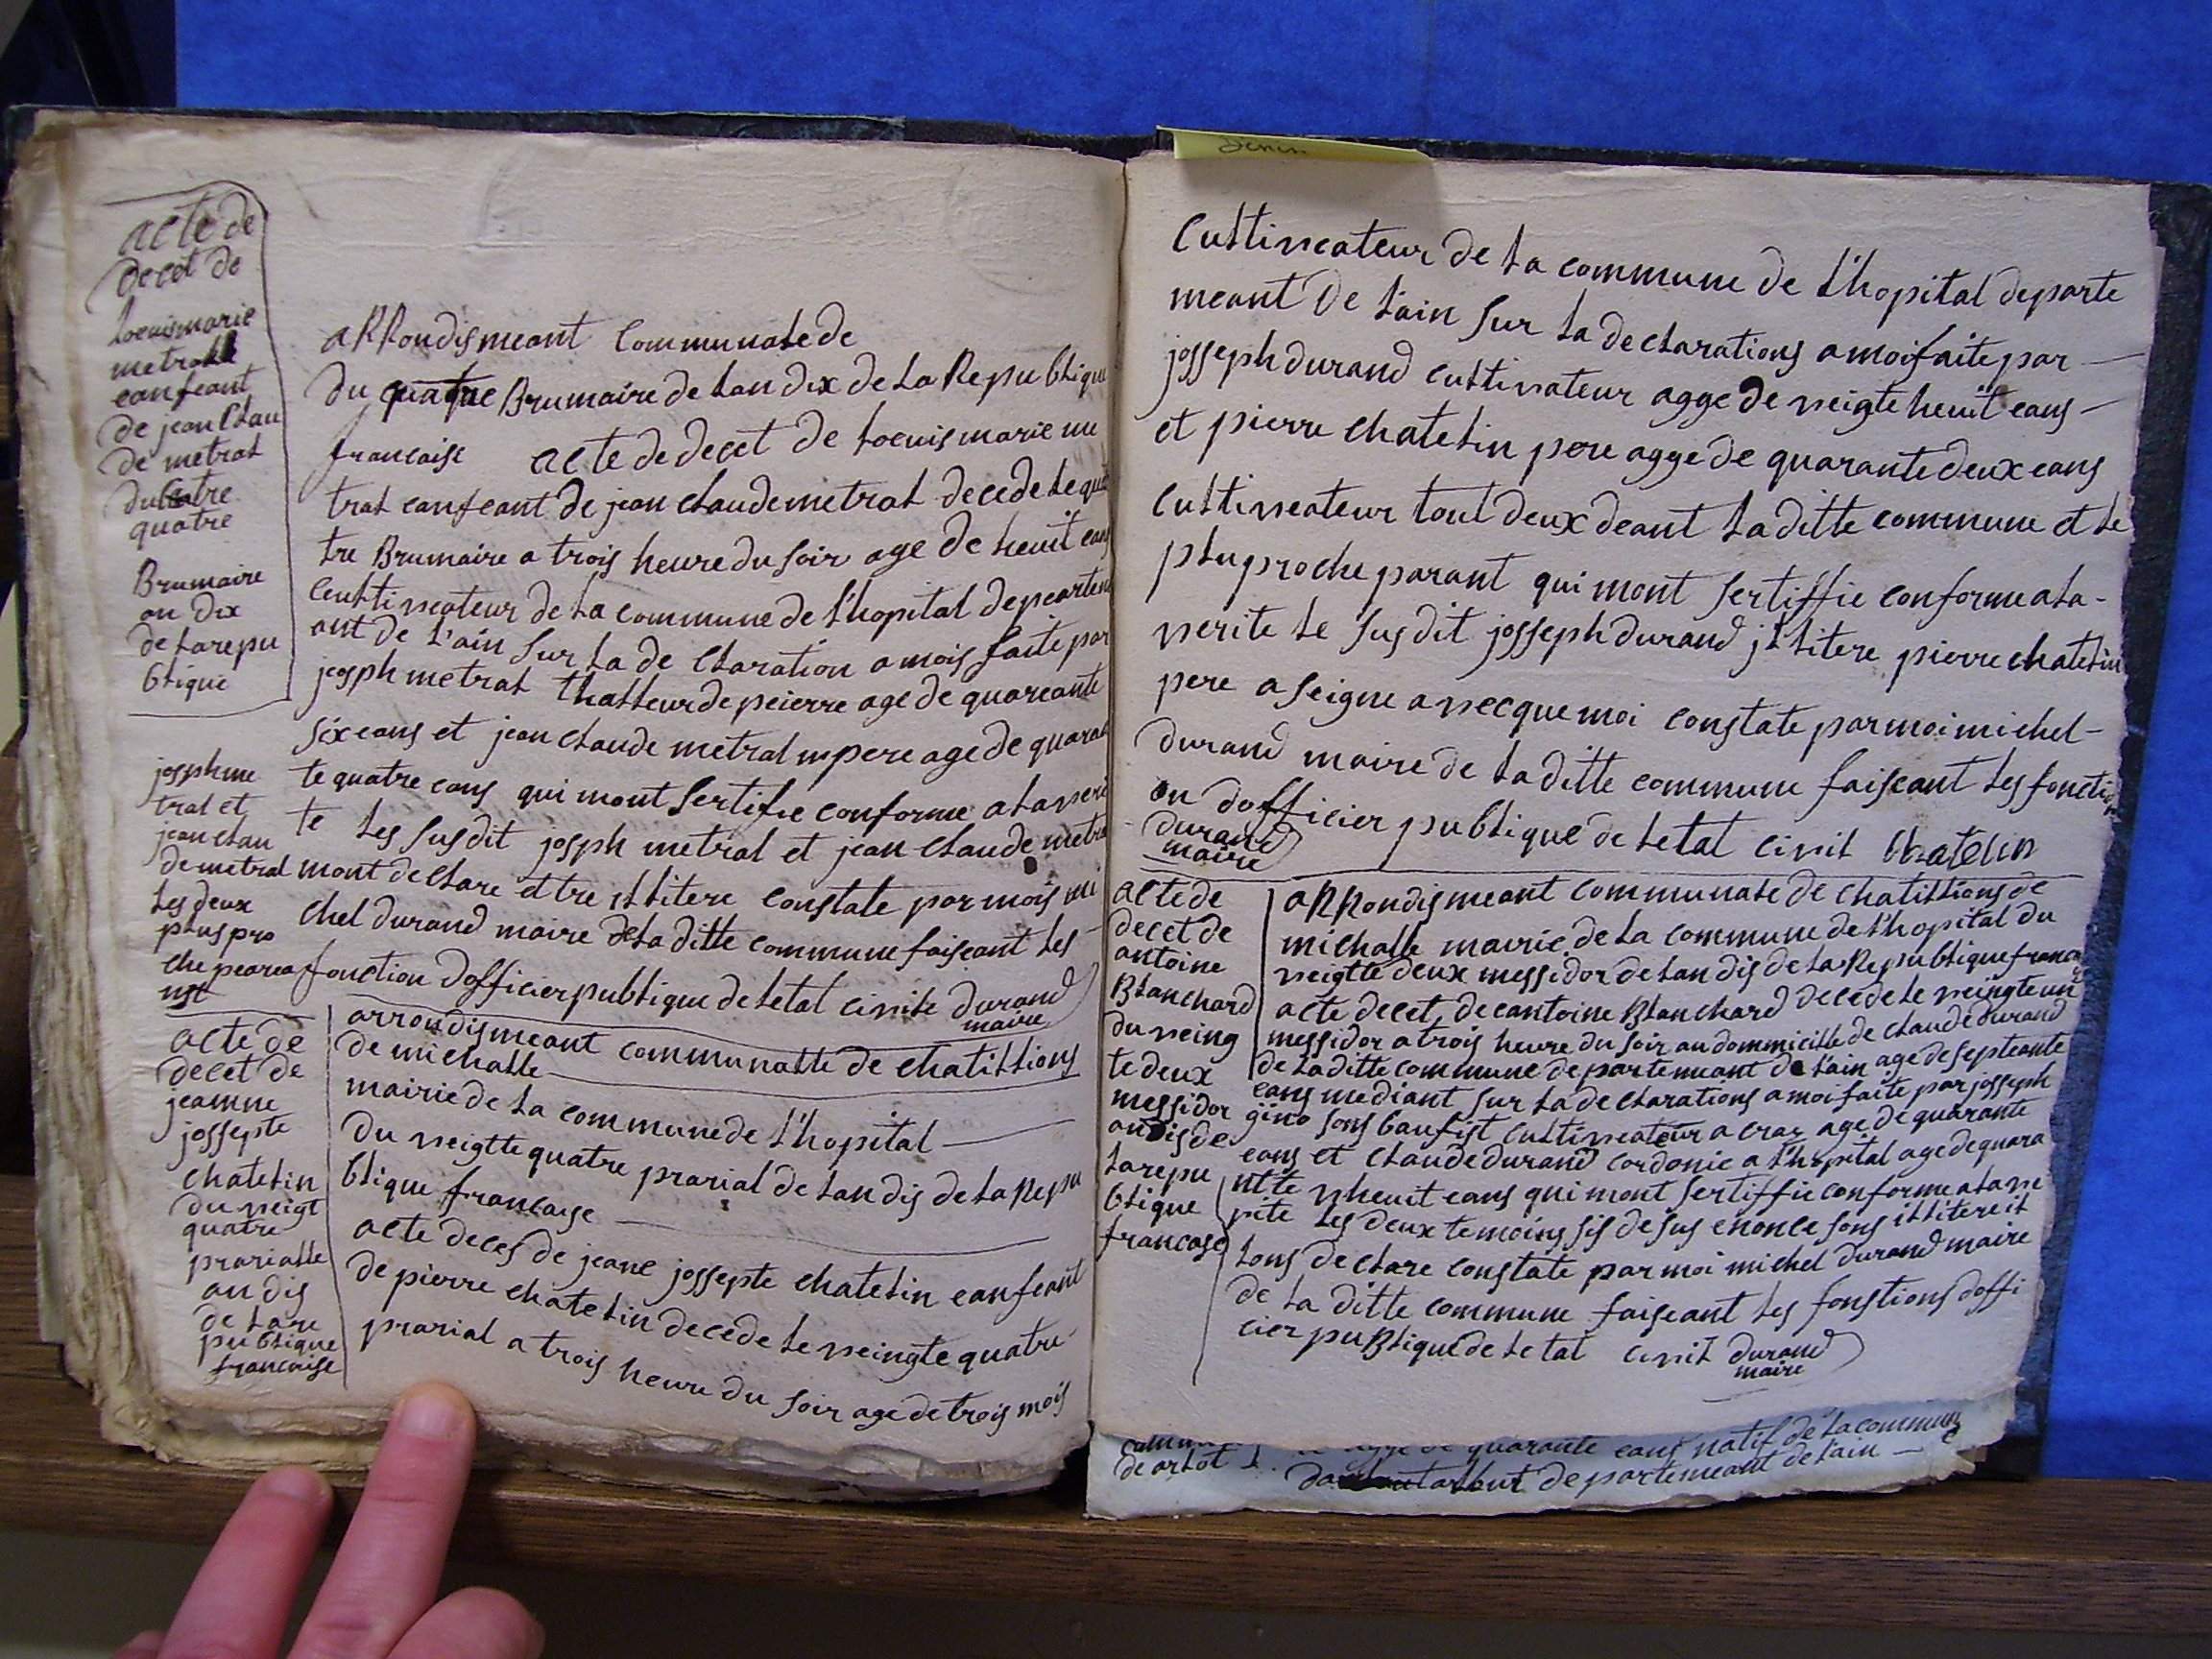 Denin
acte de
decet de
Loeuis marie
metrall
eanfeant
de jean Clau
de metral
du
quatre
Brumaire
an dix
de La repu
blique
aRRondismeant Communale de
du quatre Brumaire de Lan dix de La Republique
francaise acte de decet de Loeuis marie me
tral eanfeant de jean claude metral decede Le qua
tre Brumaire a trois heure du soir age de heuit eans
Ceultiveateur de La commune de L'hopital depeartem
ant de L'ain sur La de Claration a mois faite par
josph metral thalleur de peierre age de quareante
six eans et jean claude metral pere age de quaran
te quatre eans qui mont sertifie conforme a La veri
te Les susdit josph metral et jean Claude metral
mont declare ettre illitere constate par mois mi
chel durand maire de La ditte commune faiseant Les
fonction dofficier publique de Letal civile durand
maire
josph me
tral et
jean clau
de metral
Les deux
plus pro
che pearea
nst
acte de
decet de
jeamne
jossepte
chatelin
du veigt
quatre
prarialle
an dis
de La re
publique
francaise
arrondismeant communalle de chatillions
de michalle
mairie de La commune de L'hopital
du veigtte quatre prarial de Lan dis de La Repu
blique francaise
acte deces de jeane jossepte chatelin eanfeant
de pierre chatelin decede Le veingte quatre
prarial a trois heure du soir age de trois mois
Cultiveateur de La commune de L'hopital departe
meant de L'ain sur La declarations a moi faite par
josseph durand cultivateur agge de veigte heuit eans
et pierre chatelin pere agge de quarante deux eans
Cultiveateur tout deux deant La ditte commune et Le
plu proche parant qui mont sertiffie conforme a La
verite Le susdit josseph durand illitere pierre chatelin
pere a seigne avecque moi constate par moi michel
durand maire de La ditte commune faiseant Les foncti
on dofficier publique de Letal civil Chatelin
durand
maire
acte de
decet de
antoine
Blanchard
du veing
te deux
messidor
an dis de
La repu
blique
francase
aRRondismeant communale de chatillions de
michalle mairie de La commune de L'hopital du
veigtte deux messidor de Lan dis de La Republique franca
acte decet de eantoine Blanchard decede Le veingte un
messidor a trois heure du soir au dommicille de claude durand
de La ditte commune departemeant de L'ain age de septeante
eans mediant sur La declarations a moi faite par josseph
gino sons baufist cultiveateur a craz age de quarante
eans et claude durand cordonie a L'hopital age de quara
ntte vheuit eans qui mont sertiffie conforme a La ve
rite Les deux temoins sis desus enonce sons illitere il
Lons declare constate par moi michel durand maire
de La ditte commune faiseant Les fonstions doffi
cier puBlique de Letal civil durand
maire
de arlot
agge de quarante eans natif de La commune
departemeant de Lain